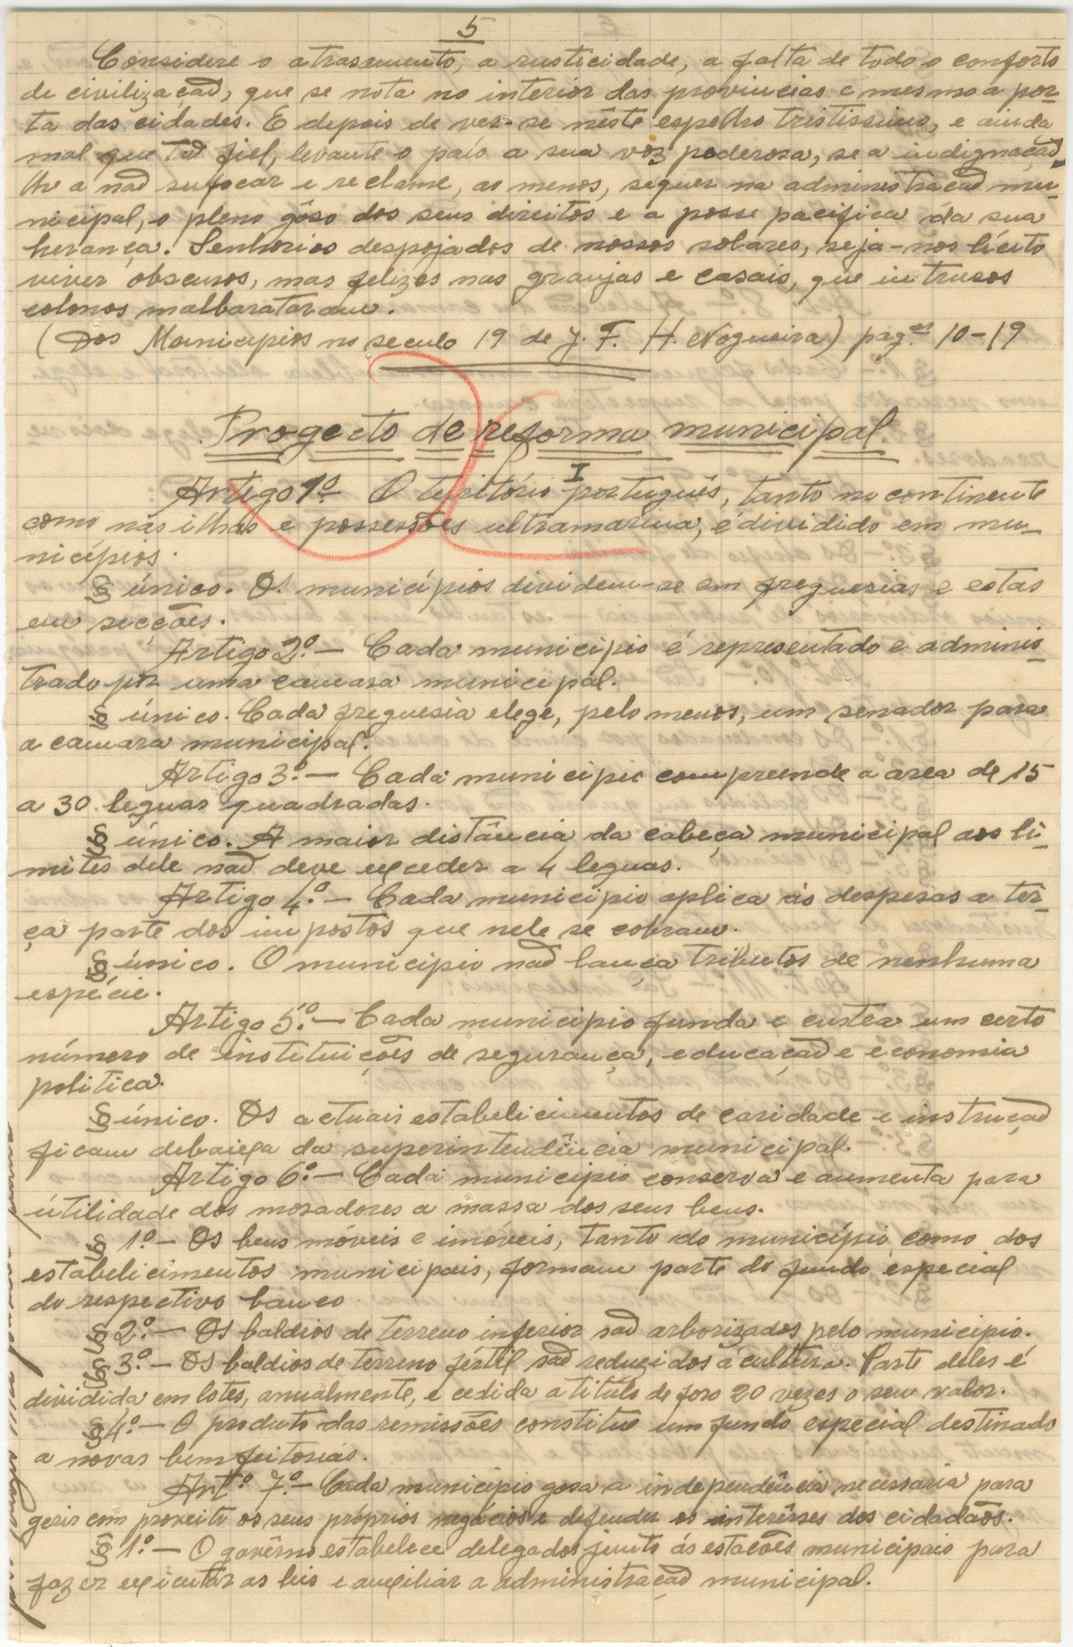 5
Considere o atrasamento, a rusticidade, a falta de todo o conforto
de civilização, que se nota no interior das provincias e mesmo á por-
ta das cidades. E depois de ver-se nêste espelho tristissimo, e ainda
mal que tão fiel, levante o país a sua voz poderosa, se a indignação
lh'a não sufocar e reclame, ao menos, sequer na administração mu-
nicipal, o pleno gôso dos seus direitos e a posse pacifica da sua
herança. Senhorios despojados de nossos solares, seja-nos licito
viver obscuros, mas felizes nas granjas e casais, que intrusos
colonos malbarataram.
(Dos Municipios no seculo 19 de J. F. H. Nogueira) pag.as 10-19
Progecto de reforma municipal
I
Artigo 1º O território português, tanto no continente
como nas ilhas e possessões ultramarina, é dividido em mu-
nicípios.
§ único. Os municípios dividem-se em freguesias e estas
em secções.
Artigo 2º.- Cada municipio é representado e adminis-
trado por uma camara municipal.
§ único. Cada freguesia elege, pelo menos, um senador para
a camara municipal.
Artigo 3º.- Cada municipio compreende a area de 15
a 30 leguas quadradas.
§ único. A maior distância da cabeça municipal aos li-
mites dele não deve exceder a 4 leguas.
Artigo 4º.- Cada municipio aplica ás despesas a ter-
ça parte dos impostos que nele se cobram.
§ único. O municipio não lança tributos de nenhuma
espécie.
Artigo 5º.- Cada municipio funda e custea um certo
número de instituições de segurança, educação e economia
politica.
§ único. Os actuais estabelicimentos de caridade e instrução
ficam debaixo da superintendência municipal.
Artigo 6º.- Cada municipio conserva e aumenta para
útilidade dos moradores a massa dos seus bens.
§ 1º.- Os bens móveis e imóveis, tanto do município como dos
estabelicimentos municipais, formam parte do fundo especial
do respectivo banco.
§ 2º.- Os baldios de terreno inferior são arborizados pelo municipio.
§ 3º.- Os baldios de terreno fértil são reduzidos á cultura. Parte deles é
dividida em lotes, anualmente, e cedida a titulo de foro 20 vezes o seu valor.
§ 4º.- O produto das remissões constitue um fundo especial destinado
a novas bemfeitorias.
Artº. 7º.- Cada municipio gosa a independência necessaria para
gerir com proveito os seus próprios negócios e defender os interêsses dos cidadãos.
§ 1º.- O govêrno estabelece delegados junto ás estacões municipais para
fazer executar as leis e auxiliar a administração municipal.